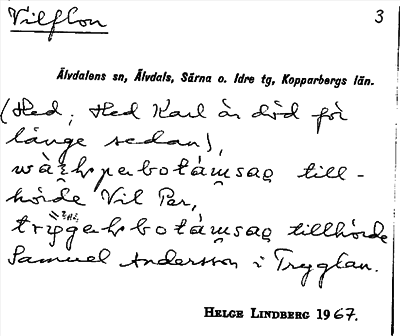 Vilflon 3
Älvdalens sn, Älvdals, Särna o. Idre tg, Kopparbergs län.
(Hed; Hed Karl är död för
länge sedan),
till-
hörde Vil Per,
tillhörde
Samuel Andersson i Trygtan.
HELGE LINDBERG 1967.